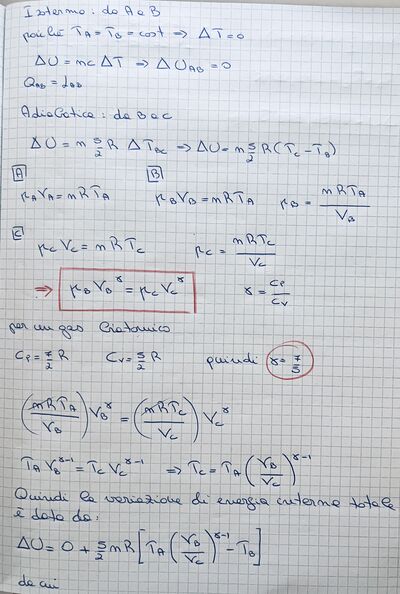 Isotermo: da A a B
poiché T_A = T_B = cost ⇒ ΔT = 0
ΔU = mcΔT ⇒ ΔU_AB = 0
Q_AB = L_AB
Adiabatica: da B a C
ΔU = n 5/2 R ΔT_BC ⇒ ΔU = n 5/2 R (T_C - T_B)
A B
p_A V_A = nRT_A p_B V_B = nRT_A p_B = nRT_A / V_B
C p_C V_C = nRT_C p_C = nRT_C / V_C
⇒ p_B V_B^γ = p_C V_C^γ γ = C_P / C_V
per un gas biatomico
C_P = 7/2 R C_V = 5/2 R quindi γ = 7/5
(nRT_A / V_B) V_B^γ = (nRT_C / V_C) V_C^γ
T_A V_B^γ-1 = T_C V_C^γ-1 ⇒ T_C = T_A (V_B / V_C)^γ-1
Quindi la variazione di energia interna totale
è data da:
ΔU = 0 + 5/2 nR [T_A (V_B / V_C)^γ-1 - T_B]
da cui